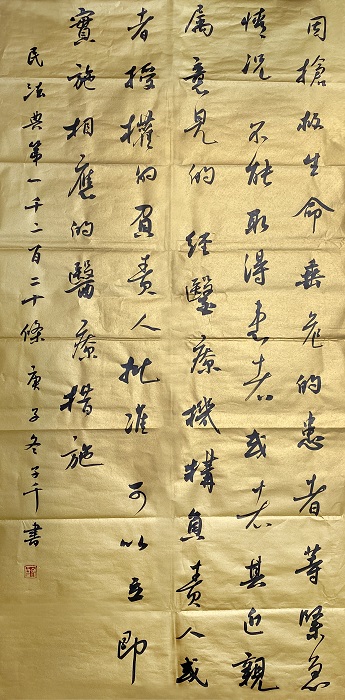 因搶救生命垂危的患者等緊急
情况 不能取得患者或者其近親
属意見的 經醫療機構負責人或
者授權的負責人批准 可以立即
實施相應的醫療措施
民法典第一千二百二十條 庚子冬子千書